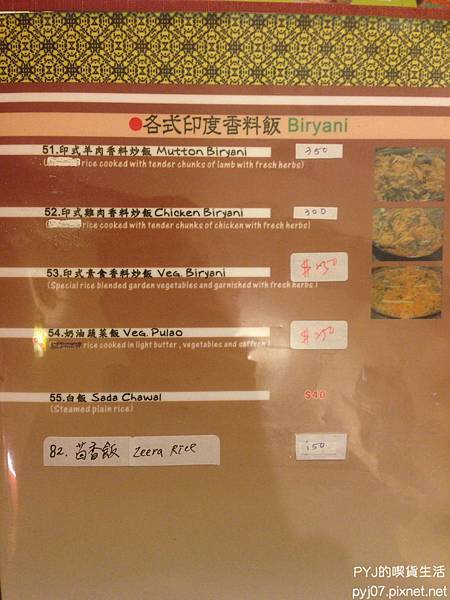 各式印度香料飯 Biryani
51.印式羊肉香料炒飯 Mutton Biryani 350
rice cooked with tender chunks of lamb with fresh herbs)
52.印式雞肉香料炒飯 Chicken Biryani 300
rice cooked with tender chunks of chicken with fresh herbs)
53.印式素食香料炒飯 Veg. Biryani
(Special rice blended garden vegetables and garnished with fresh herbs)
54.奶油蔬菜飯 Veg. Pulao $250
rice cooked in light butter , vegetables and saffron )
55.白飯 Sada Chawal $40
(Steamed plain rice)
82. 茴香飯 Zeera Rice 150
PYJ的喫貨生活
pyj07.pixnet.net